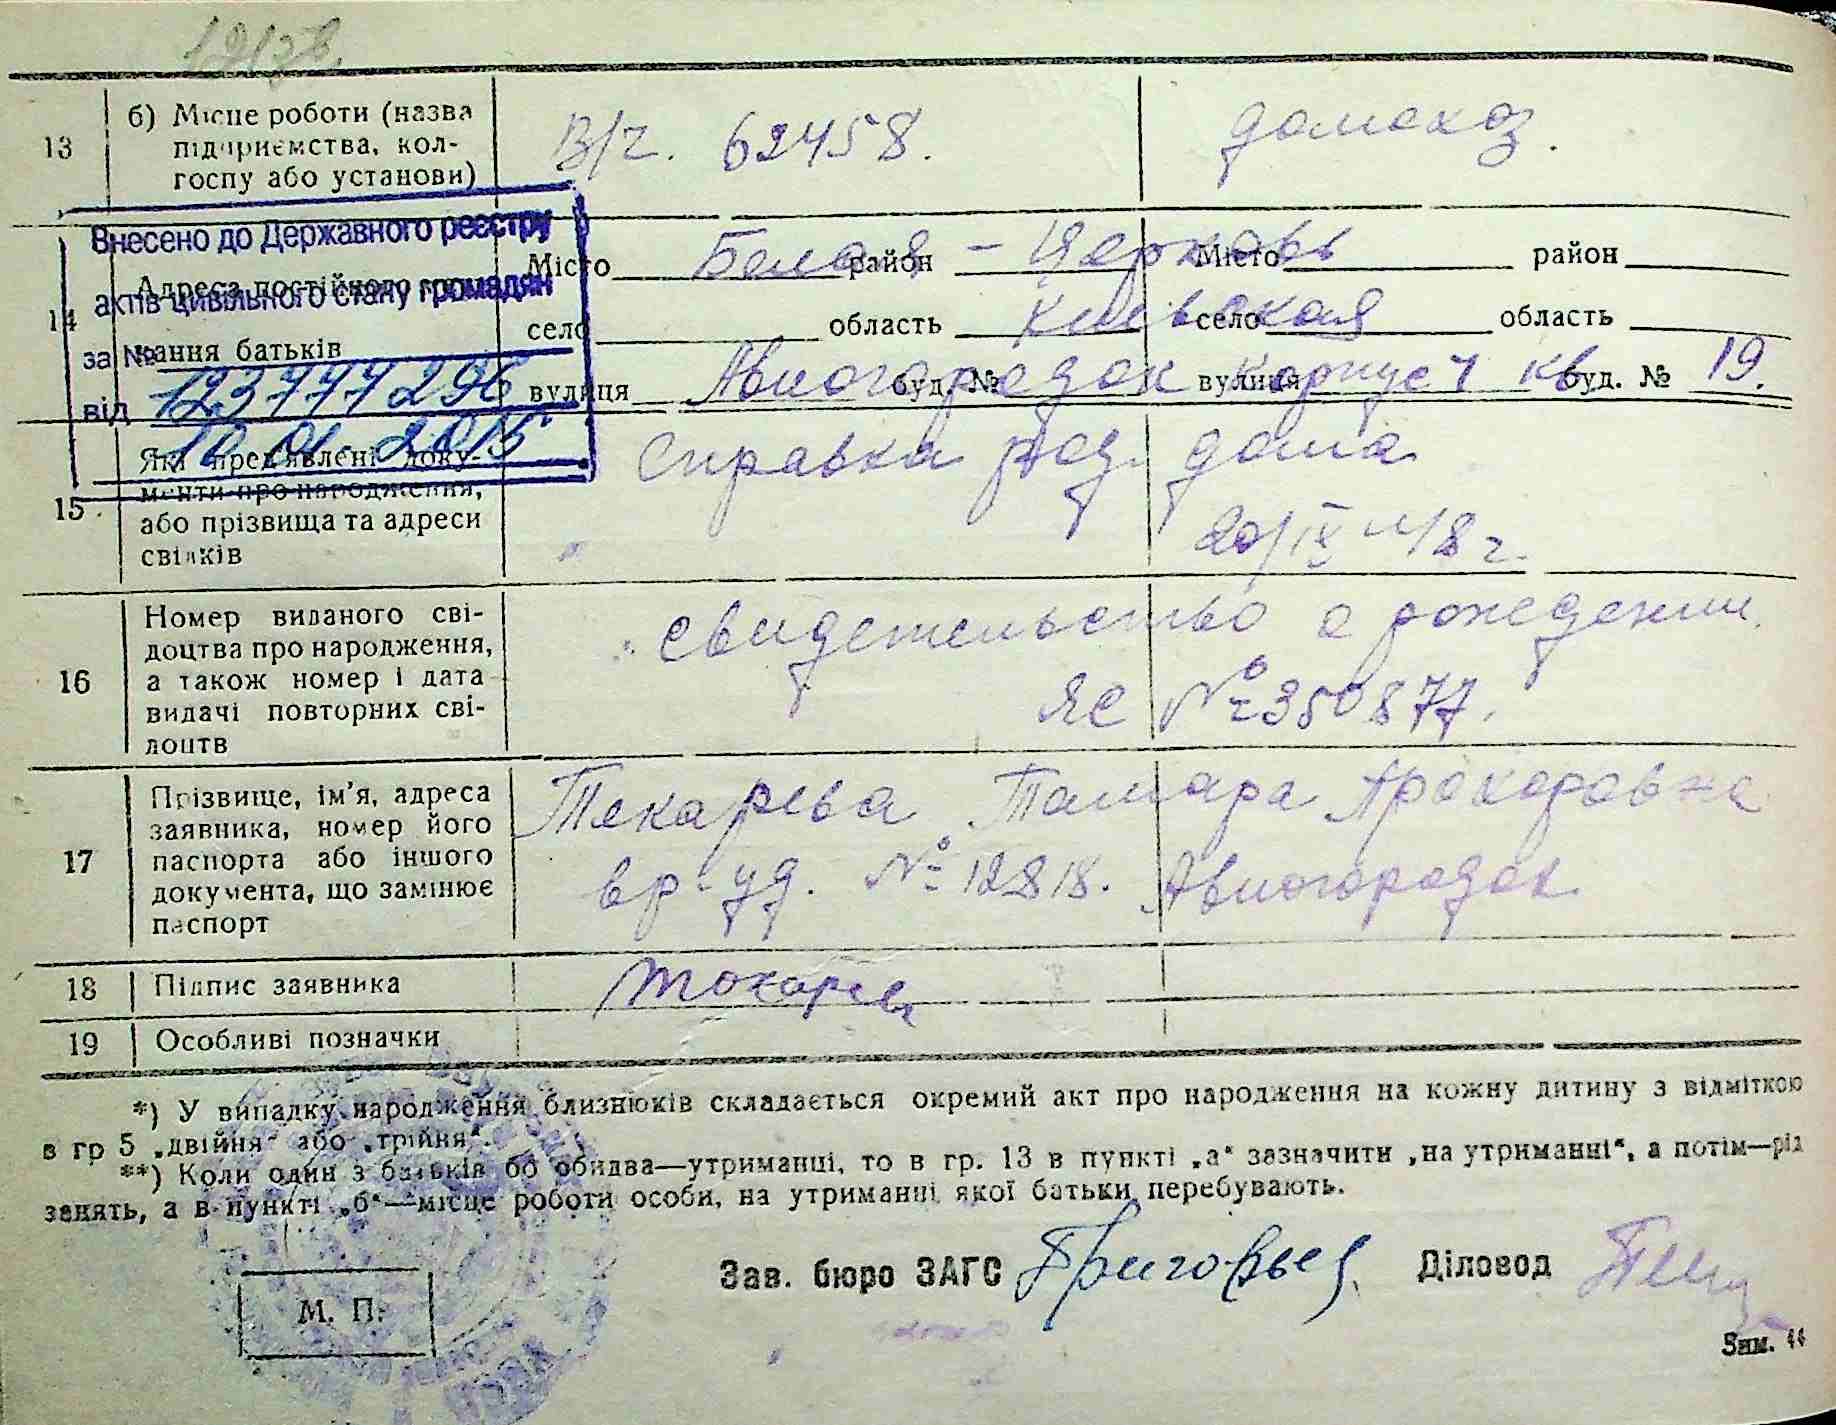 13 б) Місце роботи (назва
підприємства, кол-
госпу або установи)
В/ч. 62458. домохоз.
Внесено до Державного реєстру
актів цивільного стану громадян
за № 123777296
від 10 01 2015
14 Адреса постійного
жання батьків
Місто Белая - Церковь район Місто район
село область Киевская село область
вулиця Авиогородок буд. № корпус 1 вулиця кв буд. № 19.
15 Які пред'явлені доку-
менти про народження,
або прізвища та адреси
свідків
Справка род. дома
20/IX 48 г.
16 Номер виданого сві-
доцтва про народження,
а також номер і дата
видачі повторних сві-
доцтв
Свидетельство о рождении
ЯС № 350877.
17 Прізвище, ім'я, адреса
заявника, номер його
паспорта або іншого
документа, що замінює
паспорт
Токарева Тамара Прохоровна
вр. уд. № 12818. Авиогородок
18 Підпис заявника Токарева
19 Особливі позначки
*) У випадку народження близнюків складається окремий акт про народження на кожну дитину з відміткою
в гр 5 „двійня“ або „трійня“.
**) Коли один з батьків бо обидва—утриманці, то в гр. 13 в пункті „а“ зазначити „на утриманні“, а потім—рід
занять, а в пункті „б“—місце роботи особи, на утриманні якої батьки перебувають.
Зав. бюро ЗАГС Григорьев Діловод
М. П.
Зам. 44